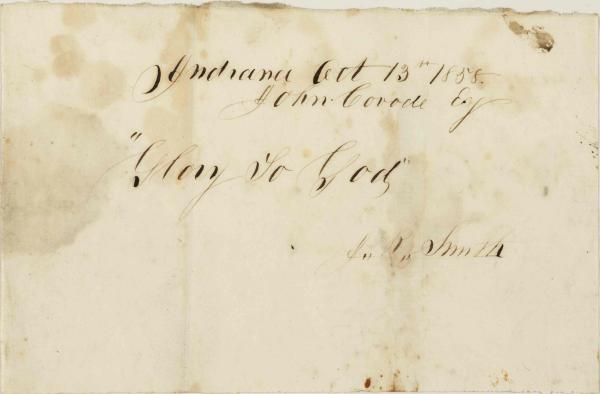 Indiana Oct 13th 1858.
John Covode Esq
"Glory to God"
J. R. Smith